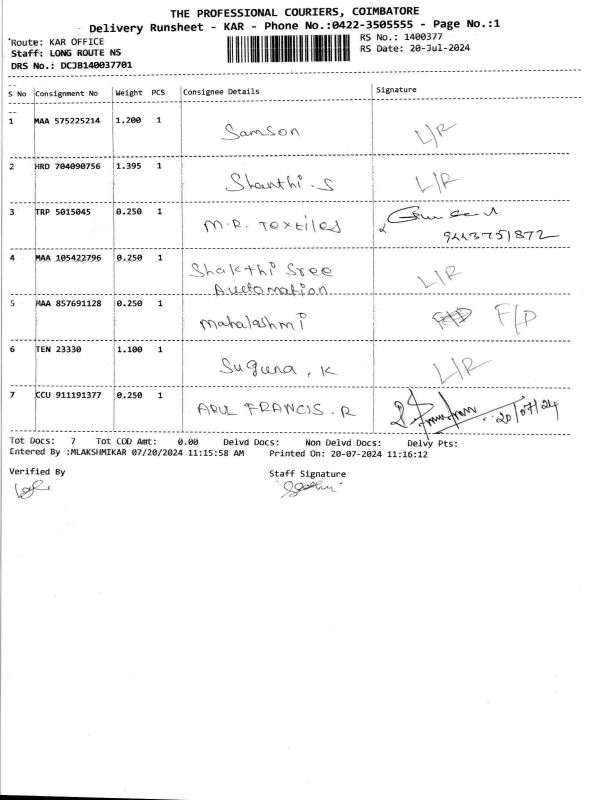 THE PROFESSIONAL COURIERS, COIMBATORE
Delivery Runsheet - KAR - Phone No.:0422-3505555 - Page No.:1
Route: KAR OFFICE
RS No.: 1400377
Staff: LONG ROUTE NS
RS Date: 20-Jul-2024
DRS No.: DCJB140037701
S No Consignment No Weight PCS Consignee Details Signature
1 MAA 575225214 1.200 1 Samson L/R
2 HRD 704090756 1.395 1 Shanthi.S L/R
3 TRP 5015045 0.250 1 M.R. Textiles
9443751872
4 MAA 105422796 0.250 1 Shakthi Sree L/R
Automation
5 MAA 857691128 0.250 1 Mahalashmi F/D
6 TEN 23330 1.100 1 Suguna, K L/R
7 CCU 911191377 0.250 1 ARUL FRANCIS. R 20/07/24
Tot Docs: 7 Tot COD Amt: 0.00 Delvd Docs: Non Delvd Docs: Delvy Pts:
Entered By :MLAKSHMIKAR 07/20/2024 11:15:58 AM Printed On: 20-07-2024 11:16:12
Verified By Staff Signature